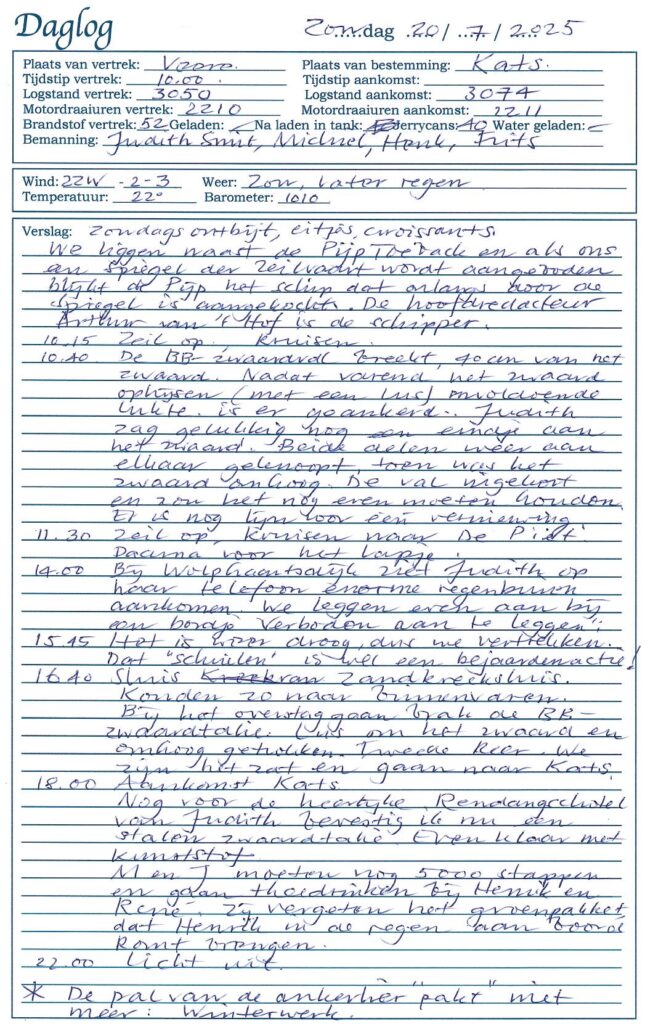 Daglog
Zondag 20/7/2025
Plaats van vertrek: Veere. Plaats van bestemming: Kats.
Tijdstip vertrek: 10.00 Tijdstip aankomst:
Logstand vertrek: 3050 Logstand aankomst: 3074
Motordraaiuren vertrek: 2210 Motordraaiuren aankomst: 2211
Brandstof vertrek: 52 Geladen: – Na laden in tank: Jerrycans: 40 Water geladen: –
Bemanning: Judith Smit, Michiel, Henk, Frits
Wind: ZZW - 2-3 Weer: Zon, later regen
Temperatuur: 22° Barometer: 1010
Verslag: Zondags ontbijt, eitjes, croissants.
We liggen naast de Pijp Toeback en als ons
een Spiegel der Zeilvaart wordt aangeboden
blijkt de Pijp het schip dat onlangs door de
Spiegel is aangekocht. De hoofdredacteur
Arthur van 't Hof is de schipper.
10.15 Zeil op, kruisen.
10.40 De BB-zwaardval breekt, 40 cm van het
zwaard. Nadat varend het zwaard
ophijsen (met een lus) onvoldoende
lukte is er geankerd. Judith
zag gelukkig nog een eindje aan
het zwaard. Beide delen weer aan
elkaar geknoopt, toen was het
zwaard omhoog. De val ingekort
en zou het nog even moeten houden.
Er is nog lijn voor één vernieuwing.
11.30 Zeil op, kruisen naar De Piet.
Daarna voor het lapje.
14.00 Bij Wolphaartsdijk ziet Judith op
haar telefoon enorme regenbuien
aankomen. We leggen even aan bij
een bordje "Verboden aan te leggen".
15.45 Het is weer droog, dus we vertrekken.
Dat "schuilen" is wel een bejaardenactie!
16.40 Sluis Zandkreeksluis.
Konden zo naar binnenvaren.
Bij het overstag gaan brak de BB-
zwaardtalie. Lus om het zwaard en
omhoog getrokken. Tweede keer. We
zijn het zat en gaan naar Kats.
18.00 Aankomst Kats
Nog voor de heerlijke Rendangschotel
van Judith bevestig ik nu een
stalen zwaardtalie. Even klaar met
kunststof
M en J moeten nog 5000 stappen
en gaan theedrinken bij Henrik en
René. Zij vergeten het groenpakket
dat Henrik in de regen aan boord
komt brengen.
22.00 Licht uit.
* De pal van de ankerlier "pakt" niet
meer: Winterwerk.